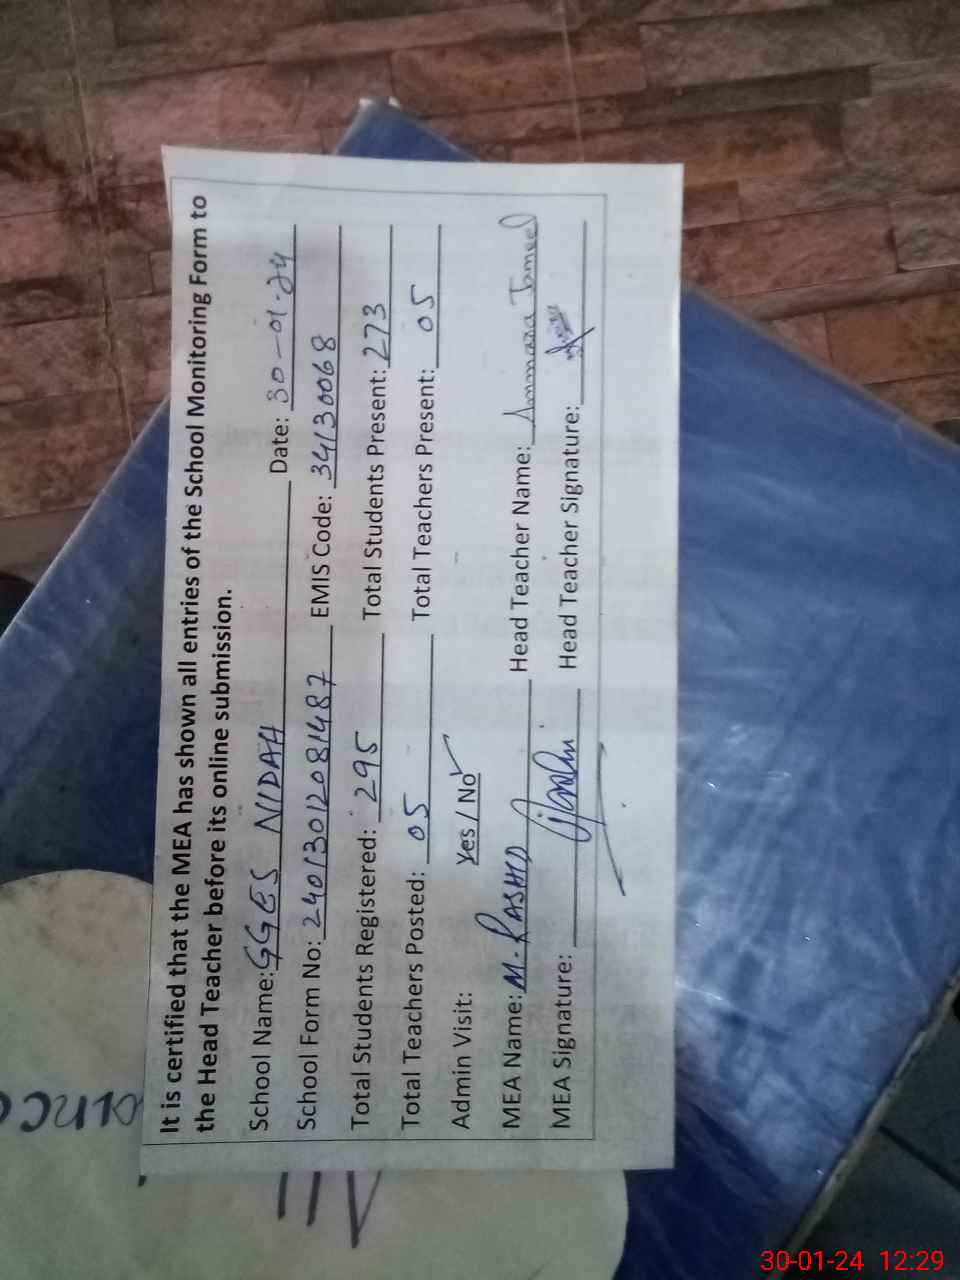 It is certified that the MEA has shown all entries of the School Monitoring Form to
the Head Teacher before its online submission.
School Name: GGES NIDAH Date: 30-01-24
School Form No: 24013012081487 EMIS Code: 34130068
Total Students Registered: 295 Total Students Present: 273
Total Teachers Posted: 05 Total Teachers Present: 05
Admin Visit: Yes / No ✓
MEA Name: M. RASHID Head Teacher Name: Ammara Jameel
MEA Signature: Head Teacher Signature:
30-01-24 12:29